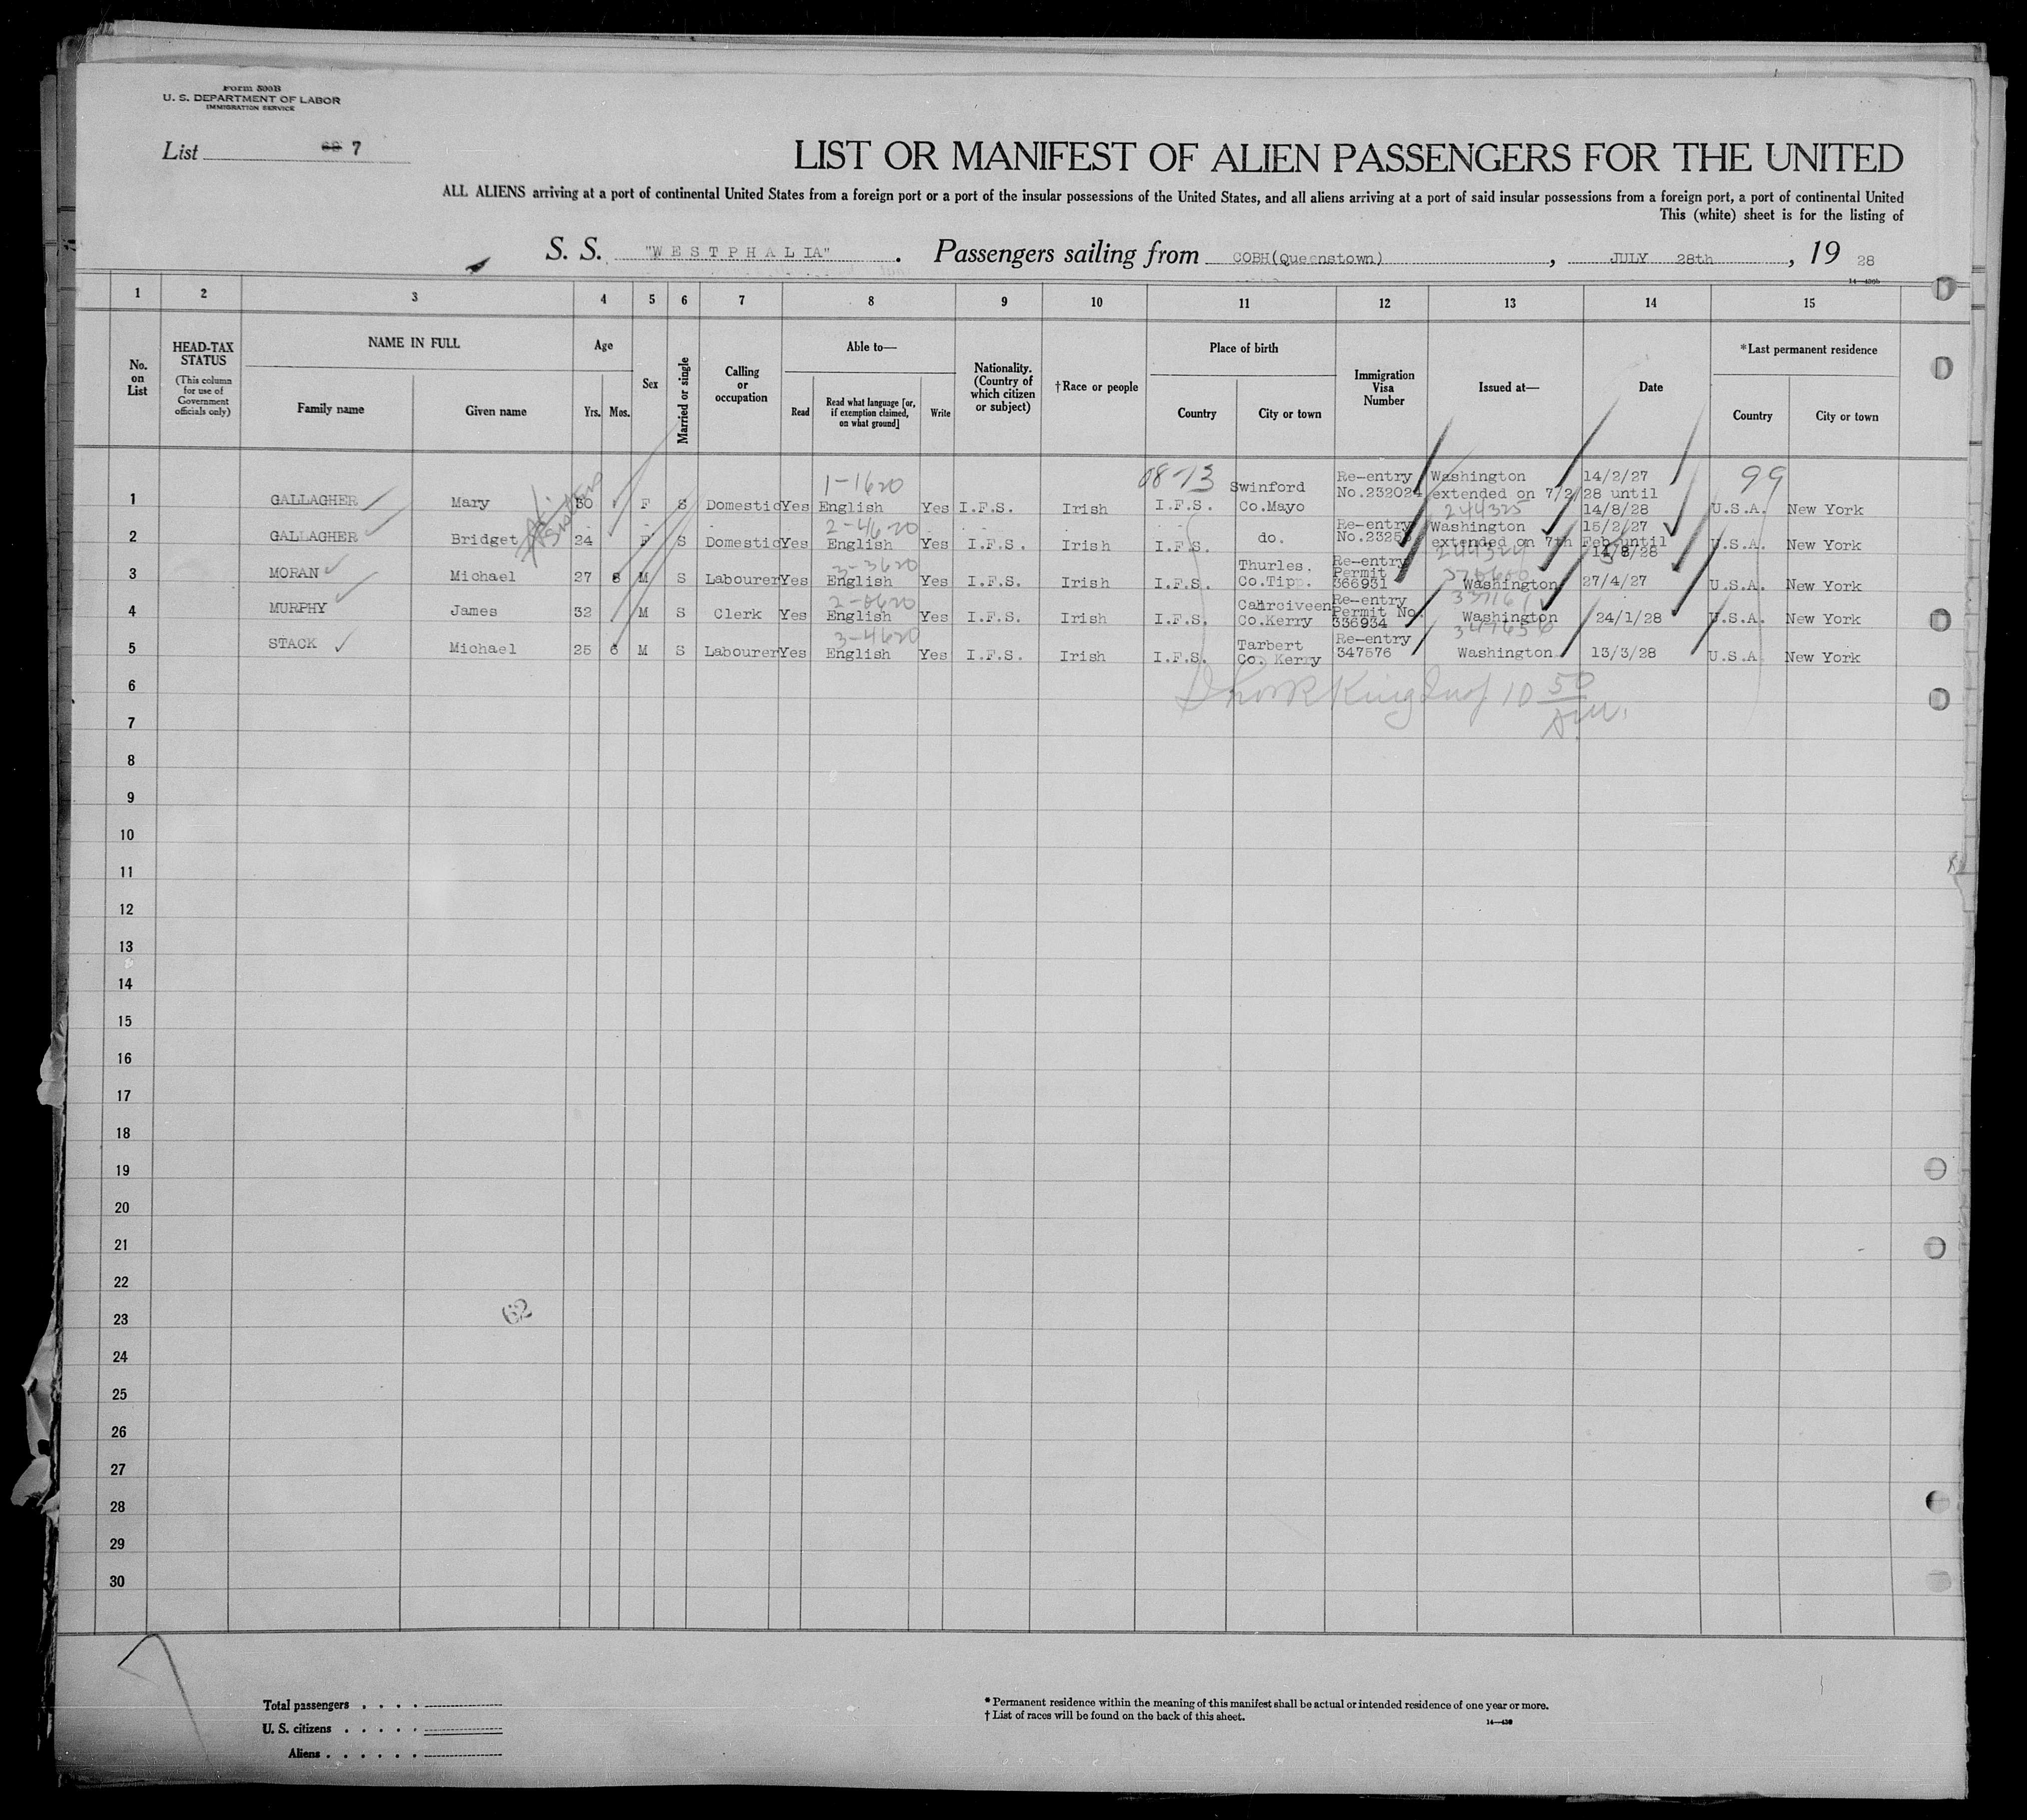 Form 500B
U. S. DEPARTMENT OF LABOR
IMMIGRATION SERVICE
List 7
LIST OR MANIFEST OF ALIEN PASSENGERS FOR THE UNITED
ALL ALIENS arriving at a port of continental United States from a foreign port or a port of the insular possessions of the United States, and all aliens arriving at a port of said insular possessions from a foreign port, a port of continental United
This (white) sheet is for the listing of
S. S. "WESTPHALIA". Passengers sailing from COBH(Queenstown), JULY 28th, 19 28
1 2 3 4 5 6 7 8 9 10 11 12 13 14 15
No. on List
HEAD-TAX STATUS (This column for use of Government officials only)
NAME IN FULL
Family name Given name
Age
Yrs. Mos.
Sex
Married or single
Calling or occupation
Able to—
Read Read what language [or, if exemption claimed, on what ground] Write
Nationality. (Country of which citizen or subject)
†Race or people
Place of birth
Country City or town
Immigration Visa Number
Issued at—
Date
*Last permanent residence
Country City or town
1-1620 08-73 99
1 GALLAGHER Mary 30 F S Domestic Yes English Yes I.F.S. Irish I.F.S. Swinford Co.Mayo Re-entry No.232024 Washington 14/2/27 extended on 7/2/28 until 14/8/28 U.S.A. New York
244325
2-4620
2 GALLAGHER Bridget 24 F S Domestic Yes English Yes I.F.S. Irish I.F.S. do. Re-entry Washington 15/2/27 extended on 7th Feb until U.S.A. New York
3-3620
3 MORAN Michael 27 6 M S Labourer Yes English Yes I.F.S. Irish I.F.S. Thurles. Co.Tipp. Re-entry Permit 366931 Washington 27/4/27 U.S.A. New York
4 MURPHY James 32 M S Clerk Yes English Yes I.F.S. Irish I.F.S. Cahrciveen Co.Kerry Re-entry Permit No. 336934 Washington 24/1/28 U.S.A. New York
3-4620
5 STACK Michael 25 6 M S Labourer Yes English Yes I.F.S. Irish I.F.S. Tarbert Co. Kerry Re-entry 347576 Washington 13/3/28 U.S.A New York
6
7
8
9
10
11
12
13
14
15
16
17
18
19
20
21
22
23
62
24
25
26
27
28
29
30
Total passengers
U. S. citizens
Aliens
* Permanent residence within the meaning of this manifest shall be actual or intended residence of one year or more.
† List of races will be found on the back of this sheet.